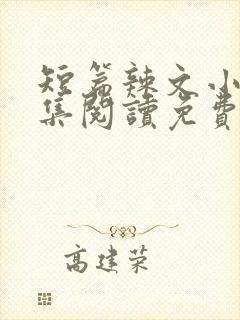 短篇辣文小
集閱讀免費
高建荣